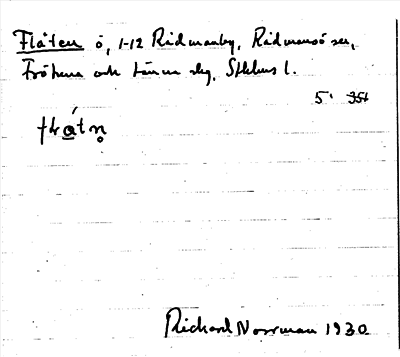 Flåten ö, 1-12 Rådmanby, Rådmansö sn,
Frötuna och Länna skg, Sthlms l.
5' 351
Richard Norrman 1930